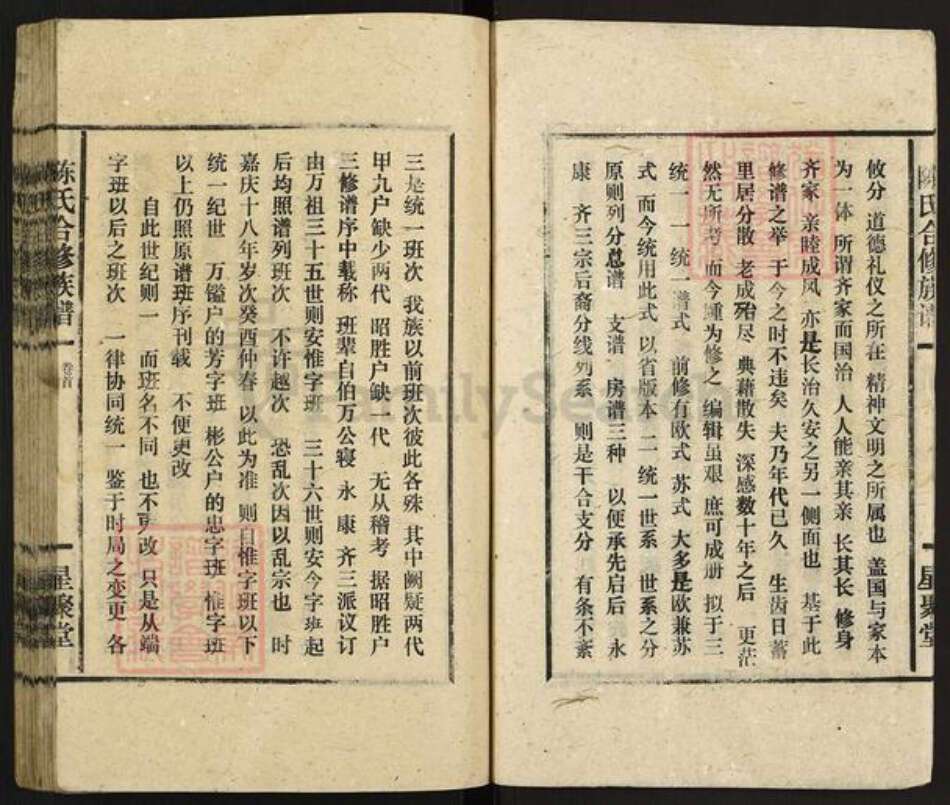 攸分 道德礼仪之所在 精神文明之所属也 盖国与家本
为一体 所谓齐家而国治 人人能亲其亲 长其长 修身
齐家 亲睦成风 亦是长治久安之另一侧面也 基于此
修谱之举 于今之时不违矣 夫乃年代已久 生齿日蕃
里居分散 老成殆尽 典藉散失 深感数十年之后 更茫
然无所考 而今踵为修之 编辑虽艰 庶可成册 拟于三
统一 一 统一谱式 前修有欧式 苏式 大多是欧兼苏
式 而今统用此式 以省版本 二 统一世系 世系之分
原则列分总谱 支谱 房谱三种 以便承先启后 永
康 齐三宗后裔分线列系 则是干合支分 有条不紊
三是统一班次 我族以前班次彼此各殊 其中阙疑两代
甲九户缺少两代 昭胜户缺一代 无从稽考 据昭胜户
三修谱序中载称 班辈自伯万公寝 永 康 齐三派议订
由万祖三十五世则安惟字班 三十六世则安今字班起
后均照谱列班次 不许越次 恐乱次因以乱宗也 时
嘉庆十八年岁次癸酉仲春 以此为准 则自惟字班以下
统一纪世 万镒户的芳字班 彬公户的忠字班 惟字班
以上仍照原谱班序刊载 不便更改
自此世纪则一 而班名不同 也不更改 只是从端
字班以后之班次 一律协同统一 鉴于时局之变更 各
陈氏合修族谱 卷首 星聚堂
陈氏合修族谱 星聚堂
FamilySearch